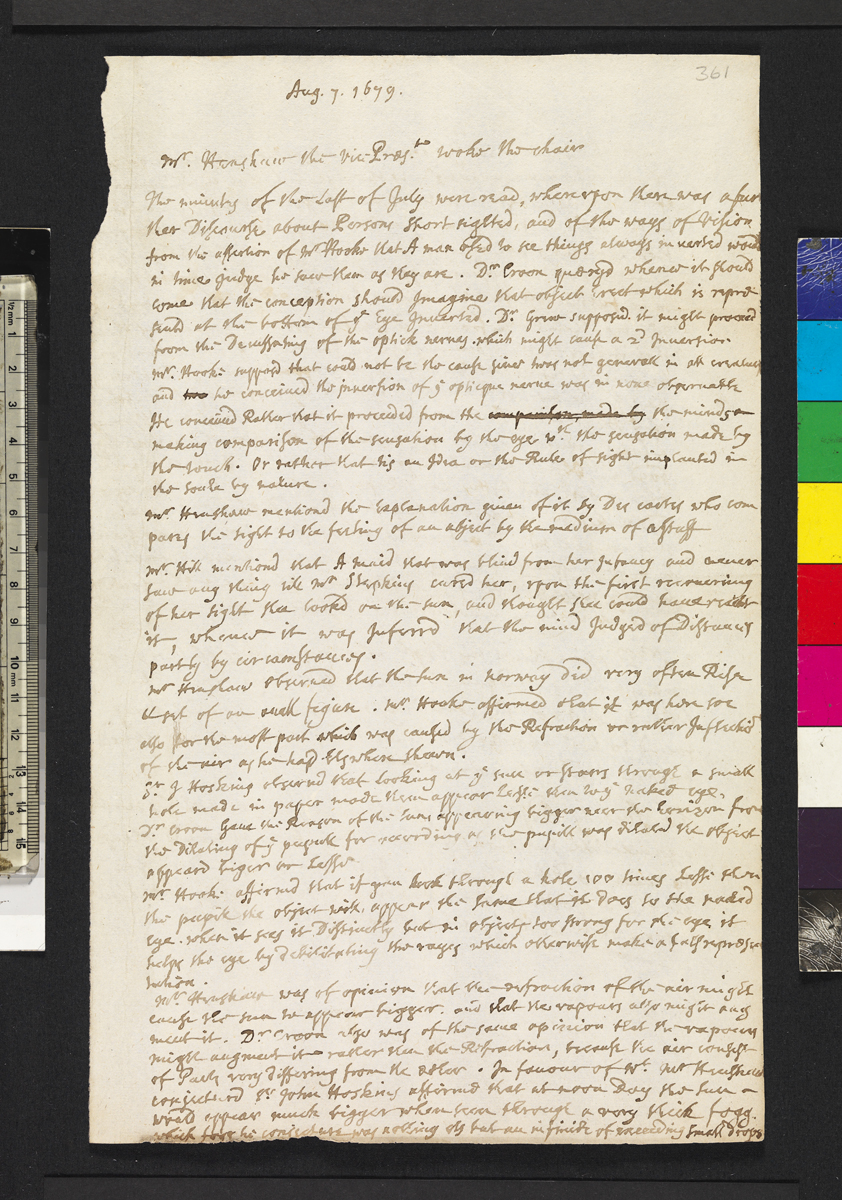 361
Aug. 7. 1679.
Mr. Henshaw the Vice Pres.t tooke the chair
The minutes of the Last of July were read, whereupon there was a fur
ther Discourse about Persons Short sighted, and of the ways of Vision
from the assertion of Mr Hooke that A man used to see things always inversed would
in time judge he saw them as they are. Dr. Croon queryd whence it should
come that the conception should Imagine that object Erect which is repre
sentd at the bottom of ye Eye Inverted. Dr. Grew supposd it might proceed
from the Decussating of the optick nerves. which might cause a 2d Inversion
Mr. Hooke supposd that could not be the cause since twas not generall in all creatures
and he conceived the inversion of ye opticque nerve was in none observable
He conceived Rather that it proceeded from the comparison, made by the minds
making comparison of the sensation by the eye wth. the sensation made by
the touch. Or rather that tis an Idea or the Rule of sight implanted in
the soule by nature.
Mr. Henshaw mentiond the Explanation given of it by Des cartes who com
pares the sight to the feeling of an object by the medium of a staff
Mr. Hill mentiond that A maid that was blind from her Infancy and never
saw any thing till Mr Stepkins cured her, upon the first recovering
of her sight shee looked on the sun, and thought shee could have reacht
it, whence it was Inferrd that the mind Judged of Distances
partly by circumstances.
Mr. Henshaw observed that the sun in Norway did very often Rise
& set of an ovall figure. Mr. Hooke affirmed that it was here soe
also for the most part which was caused by the Refraction or rather Inflection
of the air as he had Elswhere shewn.
Sr. J Hoskins observd that looking at ye sun or starrs through a small
hole made in paper made them appear Lesse then wth naked eye.
Dr. Croon Gave the Reason of the Suns appearing bigger near the horizon from
the Dilating of ye pupill for according as the pupill was dilated the object
appeard biger or Lesse
Mr. Hooke affirmd that if you look through a hole 100 times Lesse then
the pupill the object will appear the same that it Does to the naked
Eye. when it sees it Distinctly but in objects too strong for the eye it
helps the eye by debilitating the rayes which otherwise make a fals represen
tation
Mr. Henshaw was of opinion that the refraction of the air might
cause the sun to appear bigger. and that the vapours also might aug
ment it. Dr. Croon also was of the same opinion that the vapours
might augment it rather then the Refraction, because the air consists
of Parts very differing from the other. In favour of wt. Mr Henshaw
conjecturd Sr. John Hoskins affirmd that at noon Day the sun
would appear much bigger when seen through a very thick fogg.
which fogg he conjecture was nothing els but an infinite of exceeding small drops